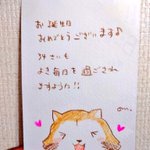 お誕生日
おめでとうございます♪
34さいも
よき毎日を過ごされ
ますように!!